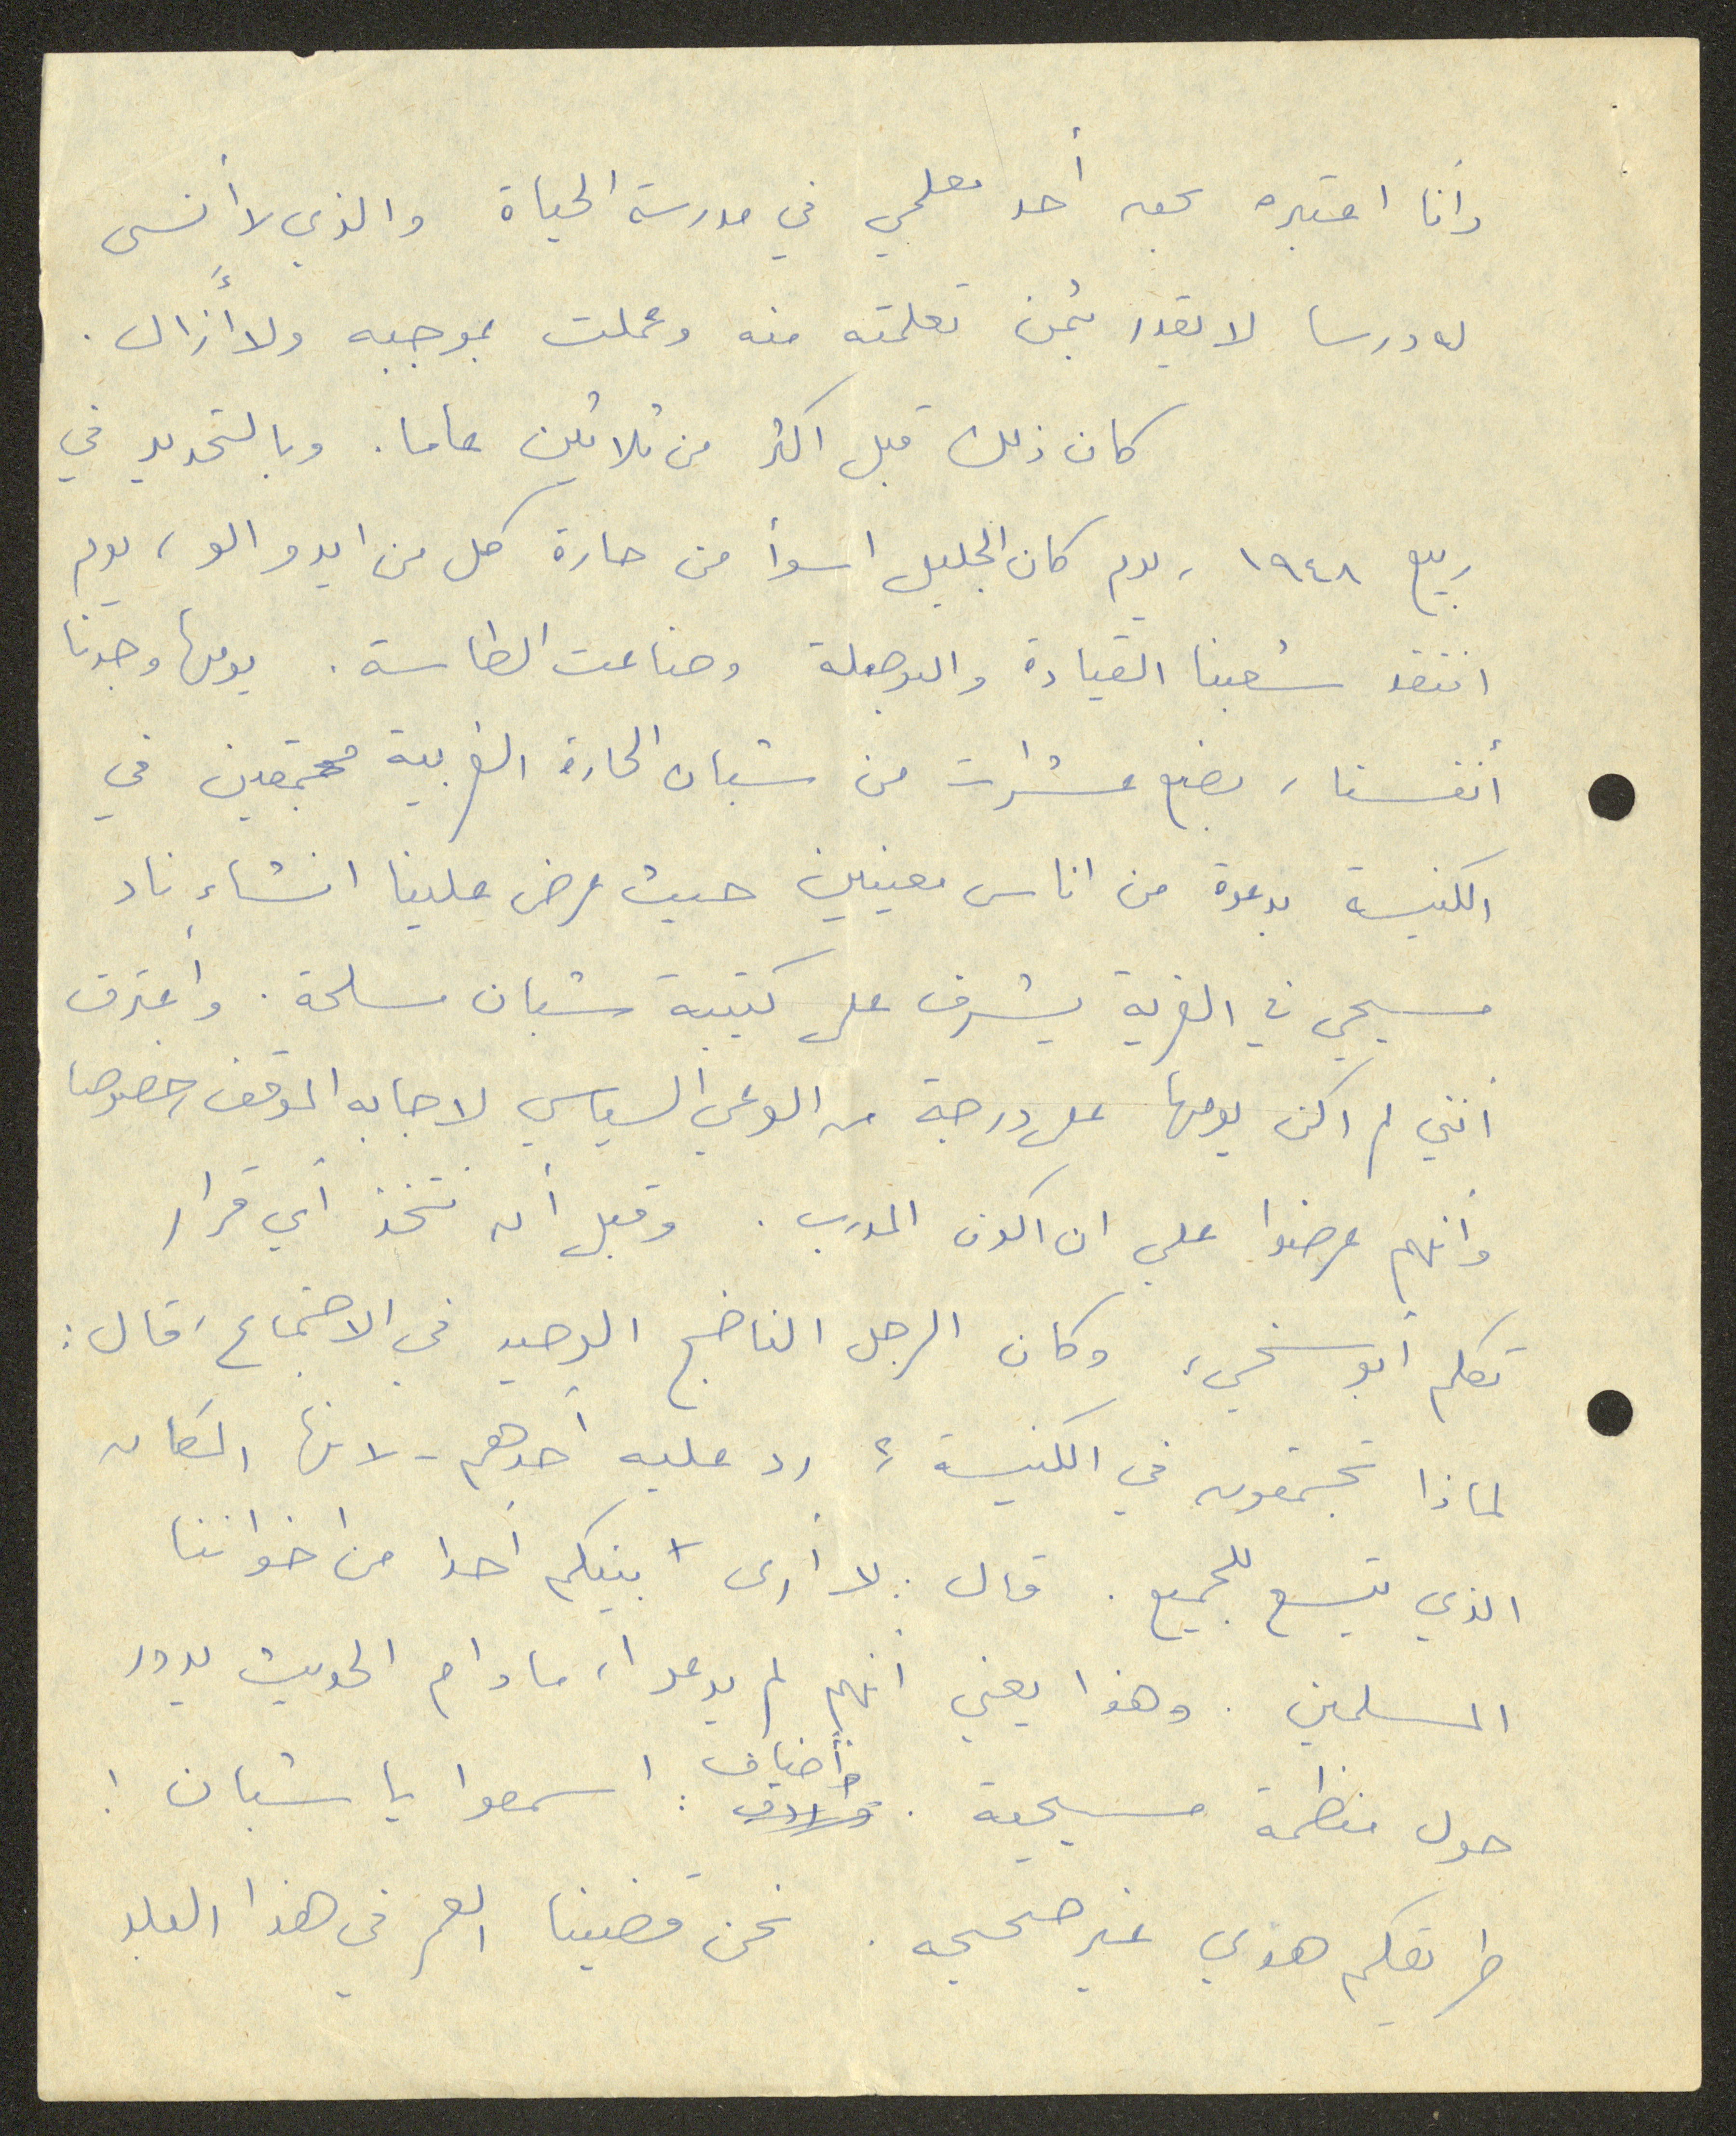 وأنا اعتبره بحق أحد معلمي في مدرسة الحياة والذي لا أنسى
له درسا لا يقدر بثمن تعلمته منه وعملت بموجبه ولا أزال .
كان ذلك قبل اكثر من ثلاثين عاما . وبالتحديد في
ربيع ١٩٤٨ ، يوم كان الجليل اسوأ من حارة كل من ايدو الو ، يوم
افتقد شعبنا القيادة والبوصلة وضاعت الطاسة . يومها وجدنا
أنفسنا ، بضع عشرات من شبان الحارة الغربية مجتمعين في
الكنيسة بدعوة من اناس معينين حيث عرض علينا انشاء ناد
مسيحي في القرية يشرف على كتيبة شبان مسلحة . وأعترف
أنني لم اكن يومها على درجة من الوعي السياسي لاجابه الموقف ، خصوصا
وأنهم عرضوا علي ان اكون المدرب . وقبل أن نتخذ أي قرار
تكلم أبو سخي ، وكان الرجل الناضج الوحيد في الاجتماع ، قال :
لماذا تجتمعون في الكنيسة ؟ رد عليه أحدهم - لانها المكان
الذي يتسع للجميع . قال : لا أرى بينكم أحدا من اخواننا
المسلمين . وهذا يعني أنهم لم يدعوا ، ما دام الحديث يدور
حول منظمة مسيحية . وأضاف : اسمعوا يا شبان !
طريقكم هذي غير صحيحه . نحن قضينا العمر في هذا البلد